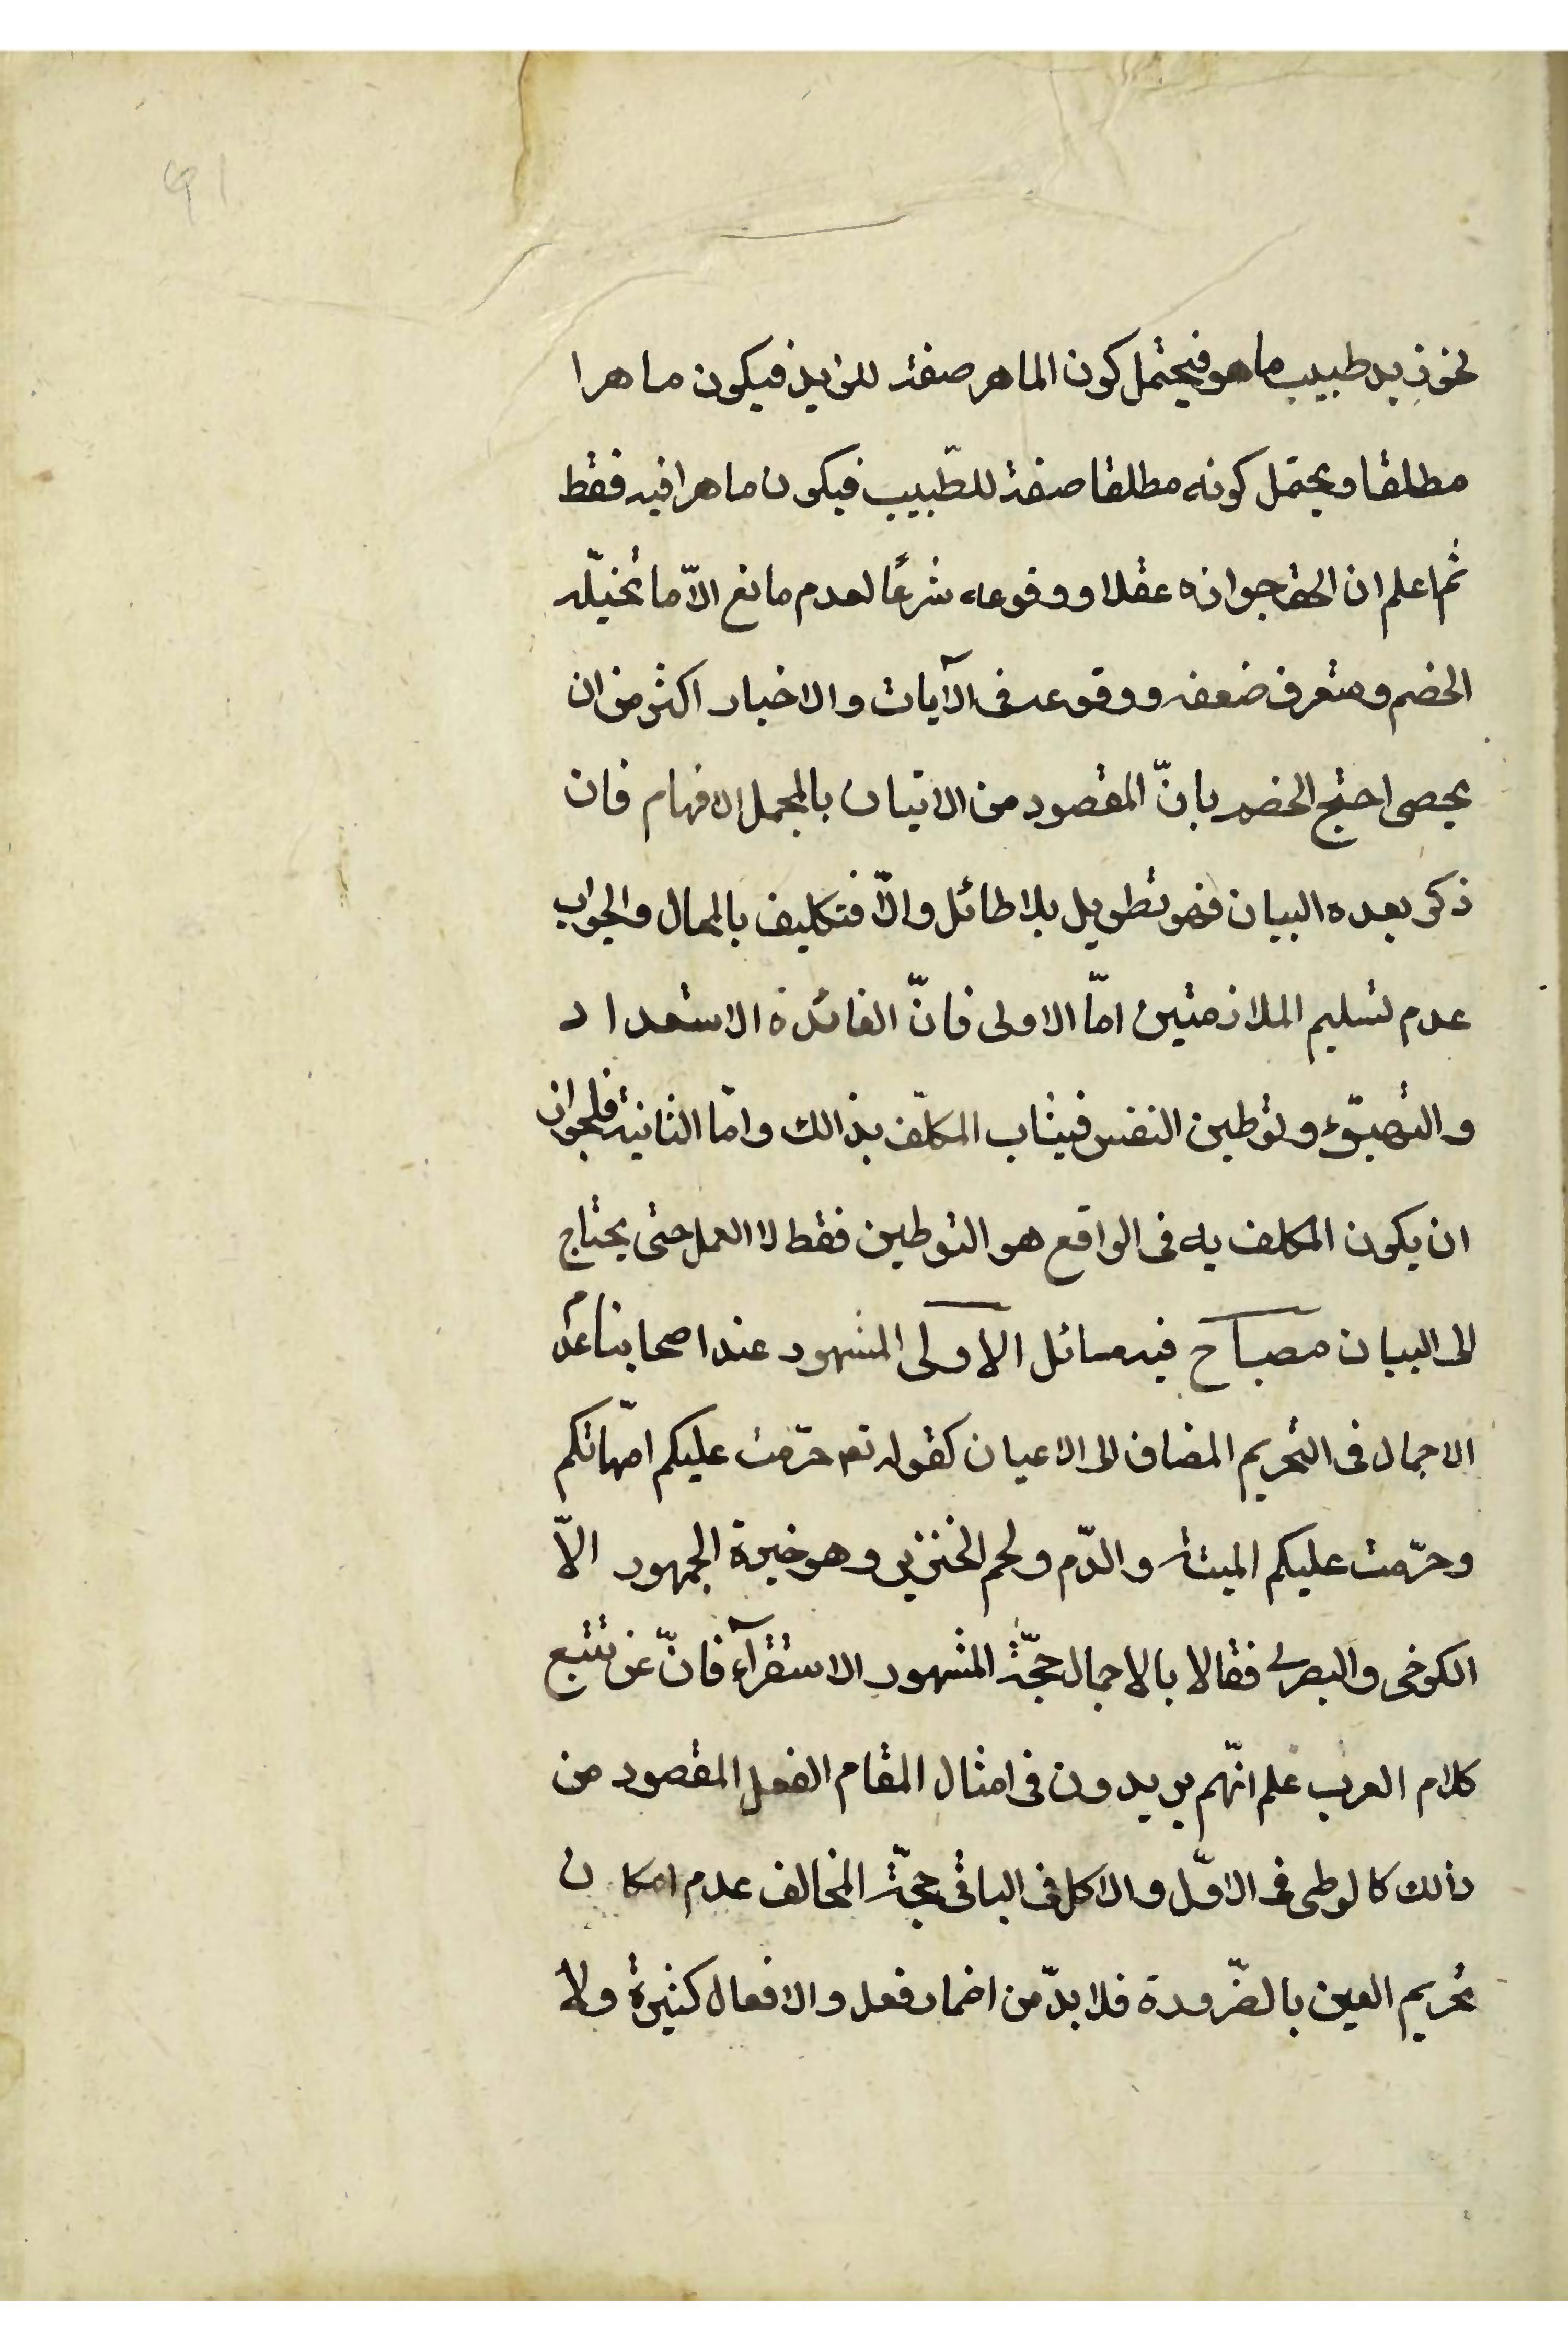 نحو زيد طبيب ماهر فيحتمل كون الماهر صفة للزيد فيكون ماهرا
مطلقا ويحتمل كونه مطلقا صفة للطّبيب فيكون ماهرا فيه فقط
ثم اعلم ان الحق جوازه عقلا ووقوعه شرعًا لعدم مانع الاّ ما تخيّله
الخصم وستعرف ضعفه ووقوعه فى الآيات والاخبار اكثر من ان
يحصى احتج الخصم بانّ المقصود من الاتيان بالمجمل الافهام فان
ذكر بعده البيان فهو تطويل بلا طائل والاّ فتكليف بالمحال والجواب
عدم تسليم الملازمتين امّا الاولى فانّ الفائدة الاستعداد
والتهيّؤ وتوطين النفس فيثاب المكلّف بذالك وامّا الثانية فلجواز
ان يكون المكلف به فى الواقع هو التوطين فقط لا العمل حتى يحتاج
الى البيان مصباح فيه مسائل الاولى المشهور عند اصحابنا عدم
الاجمال فى التحريم المضاف الى الاعيان كقوله تعـ حرّمت عليكم امّهاتكم
وحرّمت عليكم الميتة والدّم ولحم الخنزير وهو خيرة الجمهور الاّ
الكرخى والبصرى فقالا بالاجمال حجّة المشهور الاستقرآء فانّ من تتبع
كلام العرب علم انّهم يريدون فى امثال المقام الفعل المقصود من
ذالك كالوطى فى الاوّل والاكل فى الباقى حجّة المخالف عدم امكان
تحريم العين بالضّرورة فلا بدّ من اضمار فعل والافعال كثيرة ولا